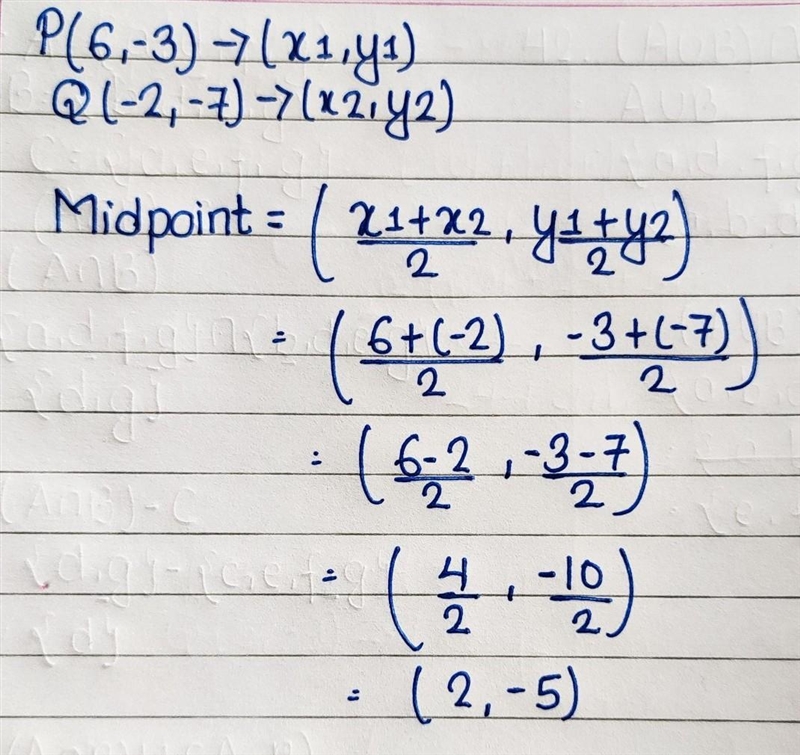 P(6,-3)→(x1,y1)
Q(-2,-7)→(x2,y2)
Midpoint = ( x1+x2/2 , y1+y2/2 )
= ( 6+(-2)/2 , -3+(-7)/2 )
= ( 6-2/2 , -3-7/2 )
= ( 4/2 , -10/2 )
= (2,-5)